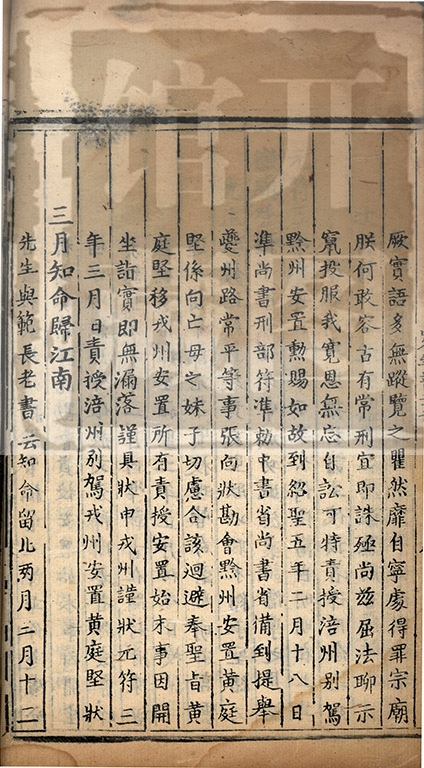 厥實語多無蹤覽之瞿然靡自寧處得罪宗廟
朕何敢容古有常刑宜即誅殛尚茲屈法聊示
竄投服我寬恩無忘自訟可特責授涪州別駕
黔州安置勳賜如故到紹聖五年二月十八日
準尚書刑部符準勅中書省尚書省備到提舉
夔州路常平等事張向狀勘會黔州安置黃庭
堅係向亡母之妹子切慮合該迴避奉聖旨黃
庭堅移戎州安置所有責授安置始末事因開
坐詣實即無漏落謹具狀申戎州謹狀元符三
年三月日責授涪州別駕戎州安置黃庭堅狀
三月知命歸江南
先生與範長老書云知命留此兩月二月十二